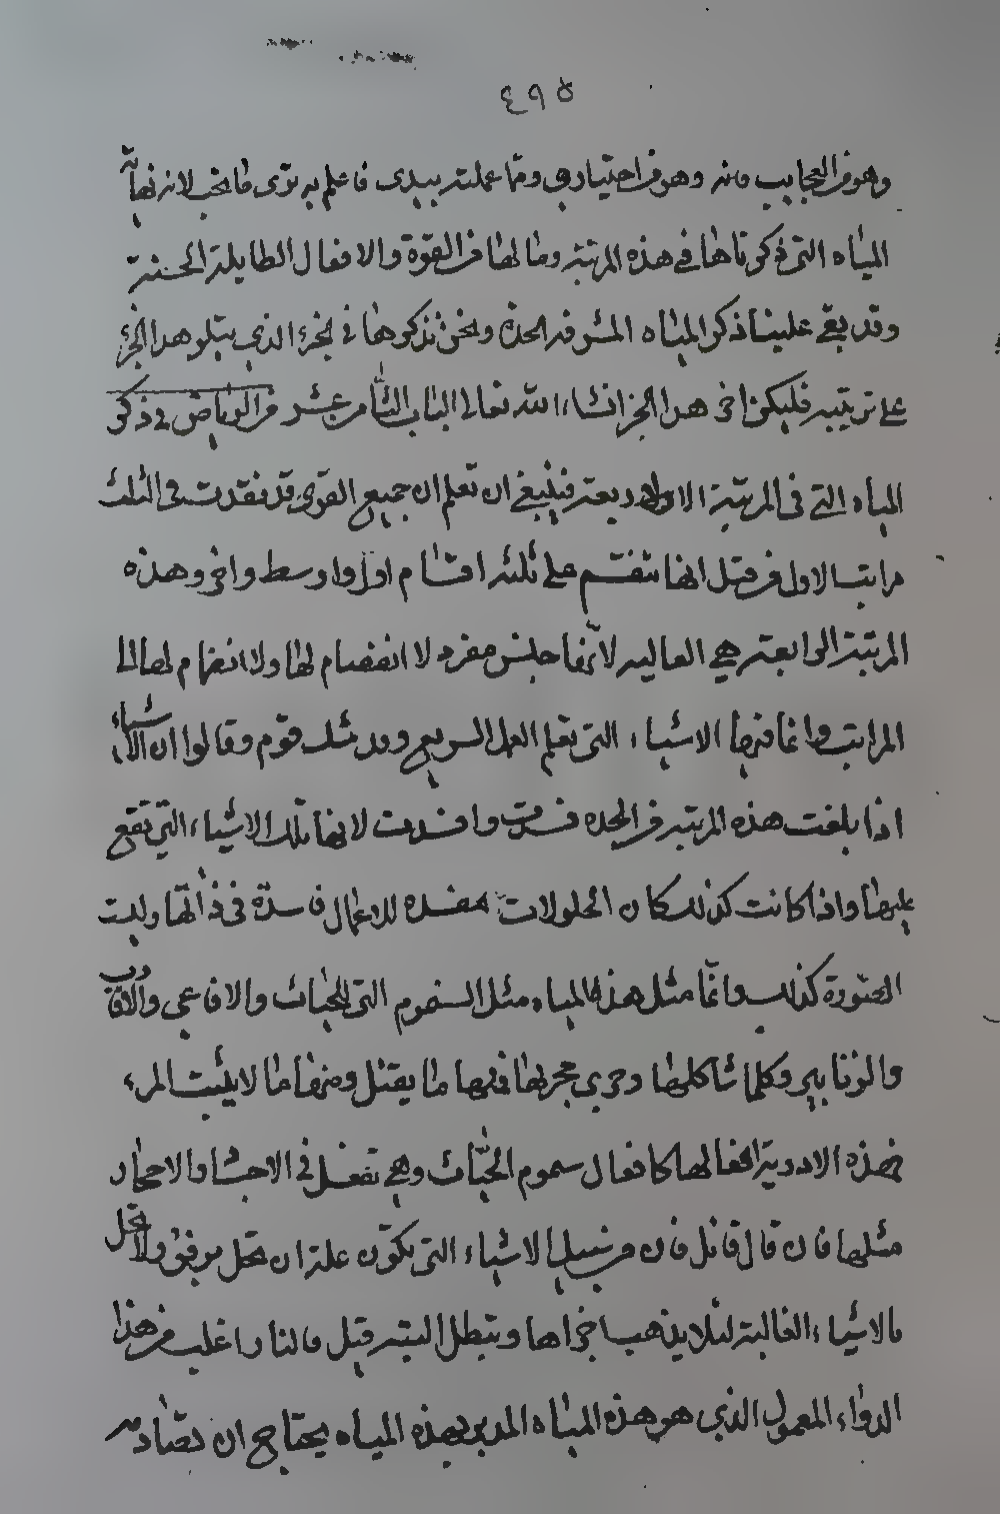 ٤٩٥
وهو من العجايب فانه وهو من اختياري ومما عملته بيدي فاعلم به ترى ما تحب لانه نهاية
المياه التي ذكرناها في هذه المرتبة وما لها من القوة والافعال الطايلة الحسنة
وقد بقي علينا ذكر المياه المسوفه الحدة ونحن نذكرها في الجزء الذي يتلو هذا الجزء
على ترتيبه فليكن اخر هذا الجز انشاء الله تعالى الباب الثامن عشر من الرياض في ذكر
المياه التي في المرتبة الرابعة فينبغي ان تعلم ان جميع القوى قد نفدت في الثلث
مراتب الاول من قبل انها تنقسم على ثلثه اقسام اول واوسط واخر وهذه
المرتبة الرابعة هي العاليه لانها جنس مفرد لا انفصام لها ولا انضمام لها الى
المراتب وانما فيها الاشياء التي تعلم العمل السريع وقد شك قوم وقالوا ان الاشياء
اذا بلغت هذه المرتبه من الحده فسدت وافسدت لانها تلك الاشياء التي تقع
عليها واذا كانت كذلك كان الحلولات مفسده للاعمال فاسدة في ذاتها وليست
الصورة كذلك وانما مثل هذه المياه مثل السموم التي للحيات والافاعي والافات
والزنابير وكلما شاكلها وجرى مجراها فمنها ما يقتل ومنها ما لا يلبث المرء
فهذه الادوية افعالها كافعال سموم الحيات وهي تفعل في الاجساد الاحجار
مثلها فان قال قائل فان من سبيل الاشياء التي تكون علة ان تحل برفق ولا تحل
بالاشياء الغالبة لئلا يذهب اجزاها وتبطل البته قيل فالنار اغلب من هذا
الدواء المعمول الذي هو هذه المياه المدبر بهذه المياه يحتاج ان تصاد